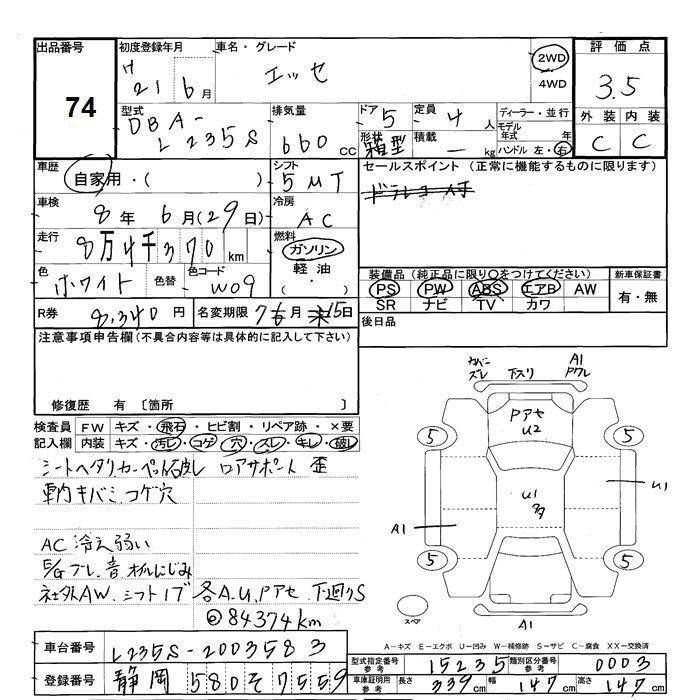 出品番号
74
初度登録年月
H
21年6月
車名・グレード
エッセ
2WD
4WD
評価点
3.5
外装 内装
C C
型式
DBA-
L235S
排気量
660 CC
ドア 5
定員 4 人
形状 箱型
積載 - kg
ディーラー・並行
モデル年式 年
ハンドル 左・右
車歴
自家用・( )
シフト
5MT
セールスポイント (正常に機能するものに限ります)
車検
8年 6月(29日)
冷房
AC
走行
8万4千370km
燃料
ガソリン
軽油
・
( )
色
ホワイト
色替
色コード
W09
装備品(純正品に限り○をつけてください)
PS PW ABS エアB AW
SR ナビ TV カワ
新車保証書
有・無
R券 8,340円
名変期限 7年6月15日
後日品
注意事項申告欄(不具合内容等は具体的に記入して下さい)
修復歴 有 〔箇所 〕
検査員 FW キズ・飛石・ヒビ割・リペア跡・×要
記入欄 内装 キズ・汚レ・コゲ・穴・スレ・キレ・破レ
シートヘタリ.カーペット破レ ロアサポート歪
車内キバミ.コゲ穴
AC冷え弱い
E/Gブレ.音 オイルにじみ
社外AW.シフトノブ 各A.U.Pアセ 下廻りS
◎84374km
カバー
ズレ
下スリ
A1
Pワレ
Pアセ
U2
5
5
U1
多
U1
A1
5
5
スペア
A1
A-キズ E-エクボ U-凹み W-補修跡 S-サビ C-腐食 XX-交換済
車台番号 L235S-2003583
型式指定番号 参考 15235
類別区分番号 参考 0003
登録番号 静岡 580 そ 7559
車庫証明用 参考 長さ 339cm 幅 147cm 高さ 147cm